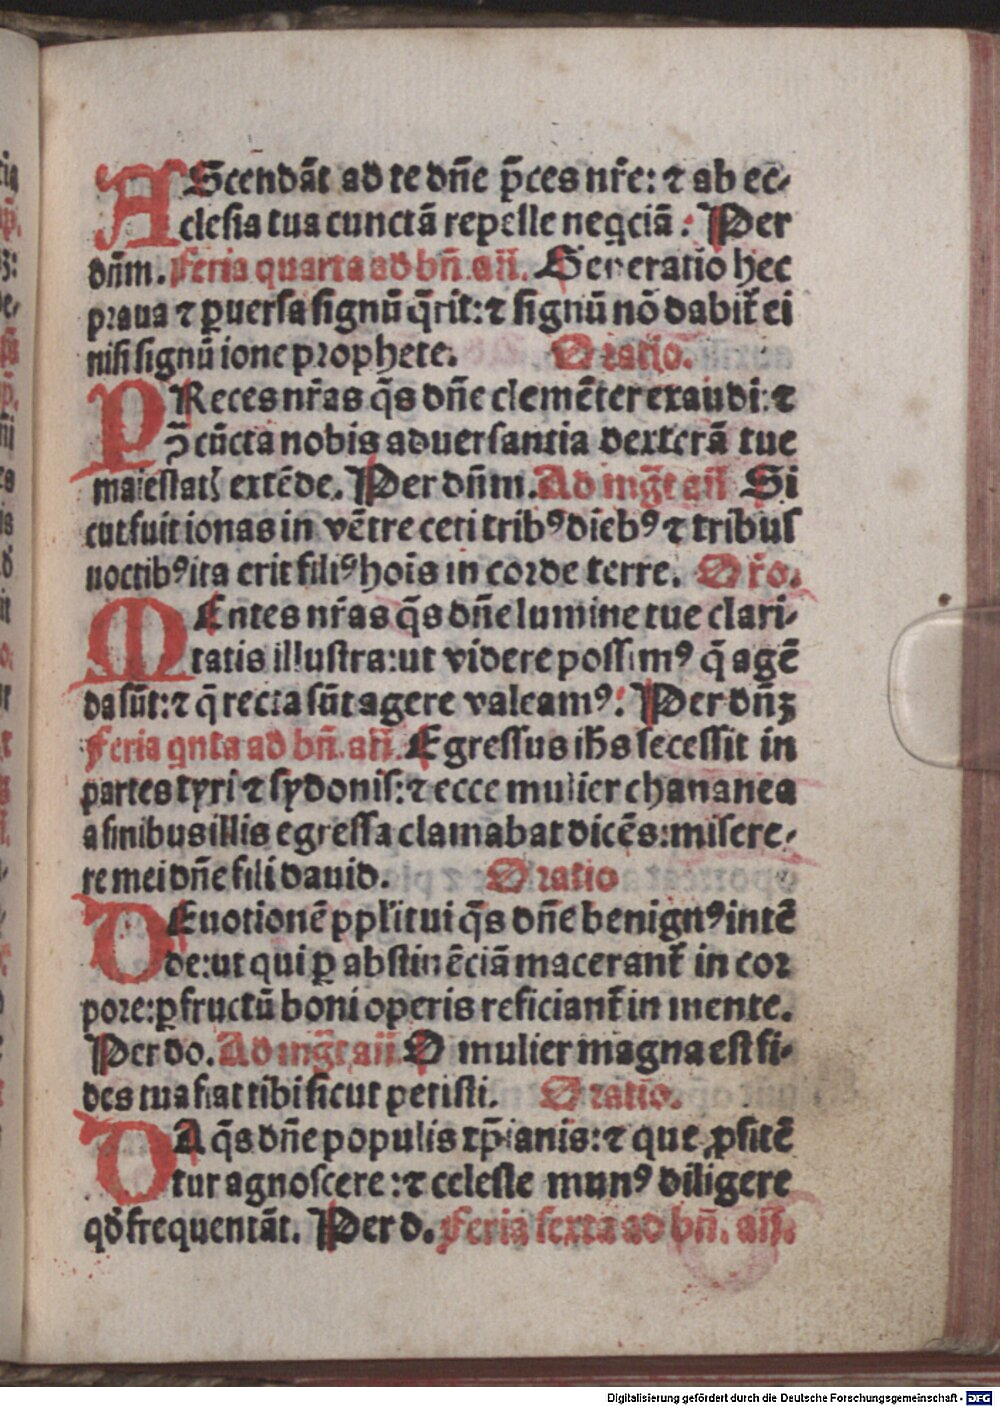 AScendãt ad te dñe p̃ces nr̃e: ⁊ ab ec⸗
clesia tua cunctã repelle neq̃ciã: Per
dñm. Feria quarta ad bñ. añ. Generatio hec
praua ⁊ ꝑuersa signũ q̃rit: ⁊ signũ nõ dabit̃ ei
nisi signũ ione prophete. Oratio.
PReces nr̃as q̃s dñe clemẽter exaudi: ⁊
ꝯ̃ cũcta nobis aduersantia dexterã tue
maiestatꝭ extẽde. Per dñm. Ad mg̃t añ Si
cut fuit ionas in vẽtre ceti tribꝰ diẽbꝰ ⁊ tribus
noctibꝰ ita erit filiꝰ hoĩs in corde terre. Or̃o.
MEntes nr̃as q̃s dñe lumine tue clari⸗
tatis illustra: ut videre possimꝰ q̃ agẽ
da sũt: ⁊ q̃ recta sũt agere valeamꝰ: Per dñꝫ
Feria qnta ad bñ. añ. Egressus ihs̃ secessit in
partes tyri ⁊ sydonis: ⁊ ecce mulier chananea
a finibus illis egressa clamabat dicẽs: misere⸗
re mei dñe fili dauid. Oratio
DEuotionẽ ppl̃i tui q̃s dñe benignꝰ intẽ
de: ut qui ꝑ abstinẽciã macerant̃ in cor
pore: ꝑ fructũ boni operis reficiant̃ in mente.
Per do. Ad mg̃t añ O mulier magna est fi⸗
des tua fiat tibi sicut petisti. Oratio.
DA q̃s dñe populis xp̃ianis: ⁊ que ꝓfitẽ
tur agnoscere: ⁊ celeste munꝰ diligere
qd̃ frequentãt. Per d. Feria sexta ad bñ. añ.
Digitalisierung gefördert durch die Deutsche Forschungsgemeinschaft - DFG